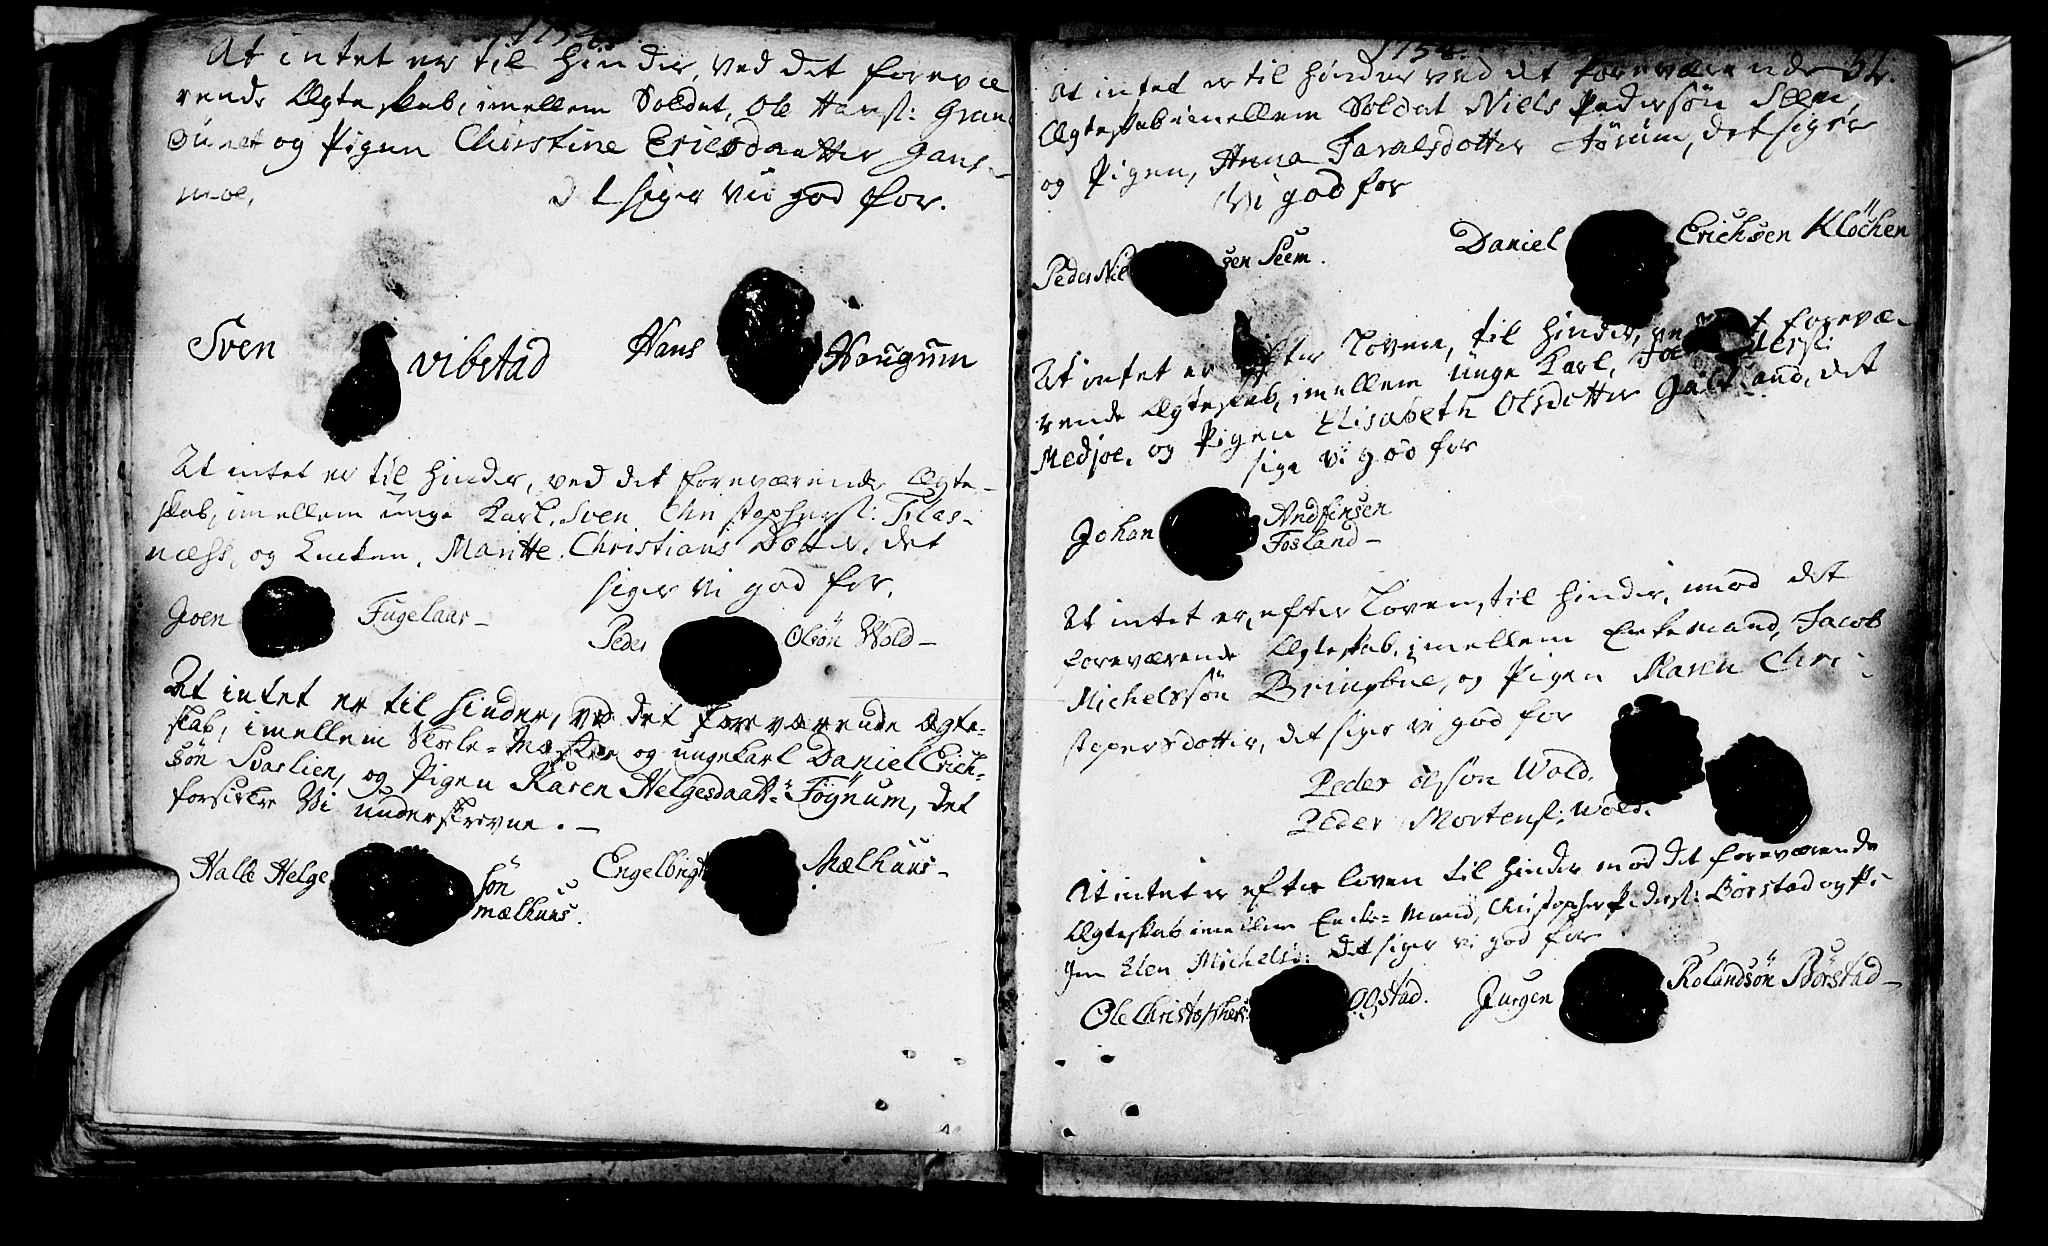 1754.
At intet er til hinder, ved det forevæ
rende Ægteskab, imellem Soldat, Ole Hansl: Gran
og Pigen Christine Ericsdaatter Gans-
moe, det siger vii god for.
Sven vibstad Hans Haugum
At intet er til hinder, ved det foreværende Ægte-
skab, imellem unge Karl, Sven Christophersl: Filas-
næss, og Enken, Maritte Christians Dotter, det
siger vi god for.
Joen Fugelaar-
Peder Olsön Wold-
At intet er til hinder, ved det foreværende Ægte-
skab, imellem Skole-Mester og ungekarl Daniel Erich-
sön Svarlien, og Pigen Karen Helgesdaatt: Föÿnum, det
forsikre Vi underskrevne.-
Halle Helge sön mælhuus. Engelbrigt Mælhuus-
1754.
At intet er til hinder ved det foreværende
Ægteskab imellem Soldat Niels Pedersön Seem,
og Pigen, Anna Taralsdotter Jörum, det siger
Vi god for
Peder Nil sen Seem. Daniel Erichsen Klöchen
At intet er efter Loven, til hinder, ved det forevæ-
rende Ægteskab, imellem unge Karl,
Medjoe, og Pigen Elisabeth Olsdotter Galtland, det
sige vi god for
Johan Andfinsen
Fosland-
At intet er, efter Loven, til hinder, mod det
foreværende Ægteskab, imellem Enkemand, Jacob
Michelssön Bringbue, og Pigen Maren Chri-
stopersdotter, det siger vi god for
Peder Olson Wold.
Peder Mortensl: Wold.
At intet er efter loven til hinder mod det foreværende
Ægteskab imellem Encke-Mand, Christopher Pedersl: Börstad og Pi-
gen Elen Michelsd: Det siger vi god for
Ole Christophers: Ogstad. Jurgen Rolandsön Börstad-